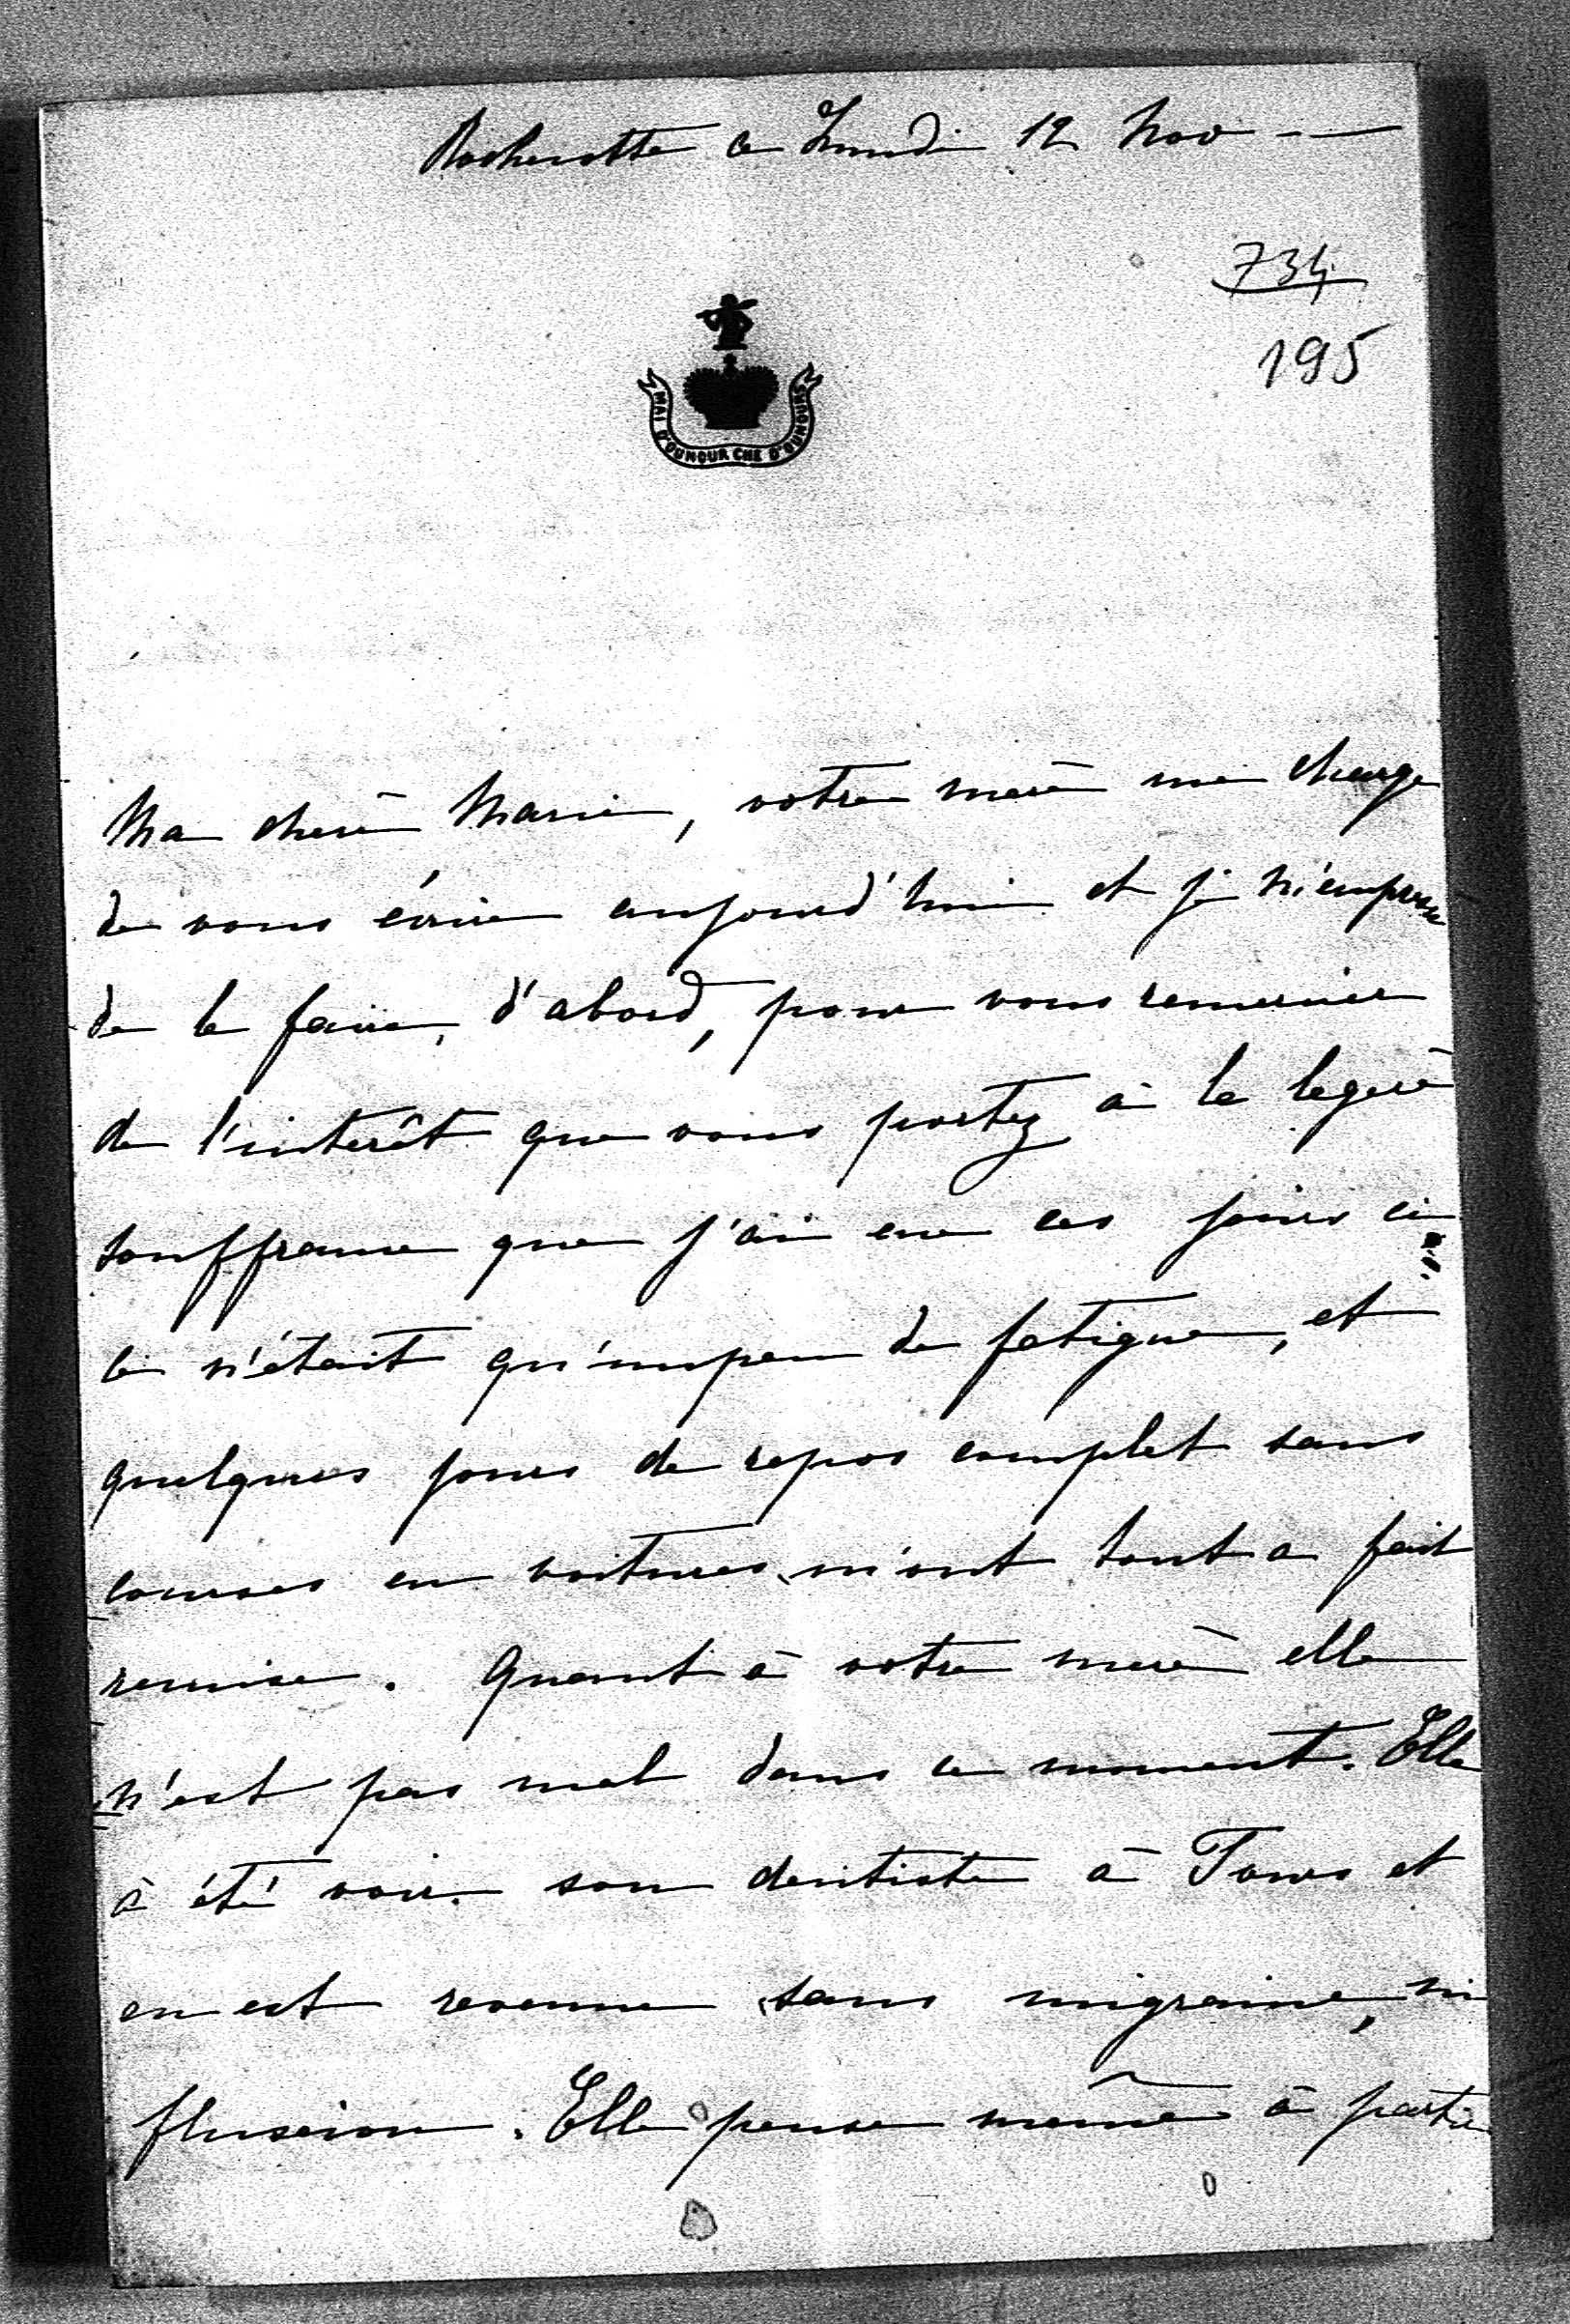 Rochecotte ce Lundi 12 Nov
734
195
MAI D'OUNOUR CHE D'OUNOURS
Ma cherè Marie, votre merè me charge
de vous écrire aujourd'hui et je m'empresse
de le faire, d'abord, pour vous remercier
de l'interêt que vous portez à la legerè
souffrance que j'ai eue ces jours ci
ce n'était qu'un peu de fatigue, et
quelques jours de repos complet sans
courses en voitures m'ont tout a fait
remise. Quant à votre merè elle
n'est pas mal dans ce moment. Elle
à été voir son dentiste à Tours et
en est revenue sans migraine, ni
fluxion. Elle pense même à partir